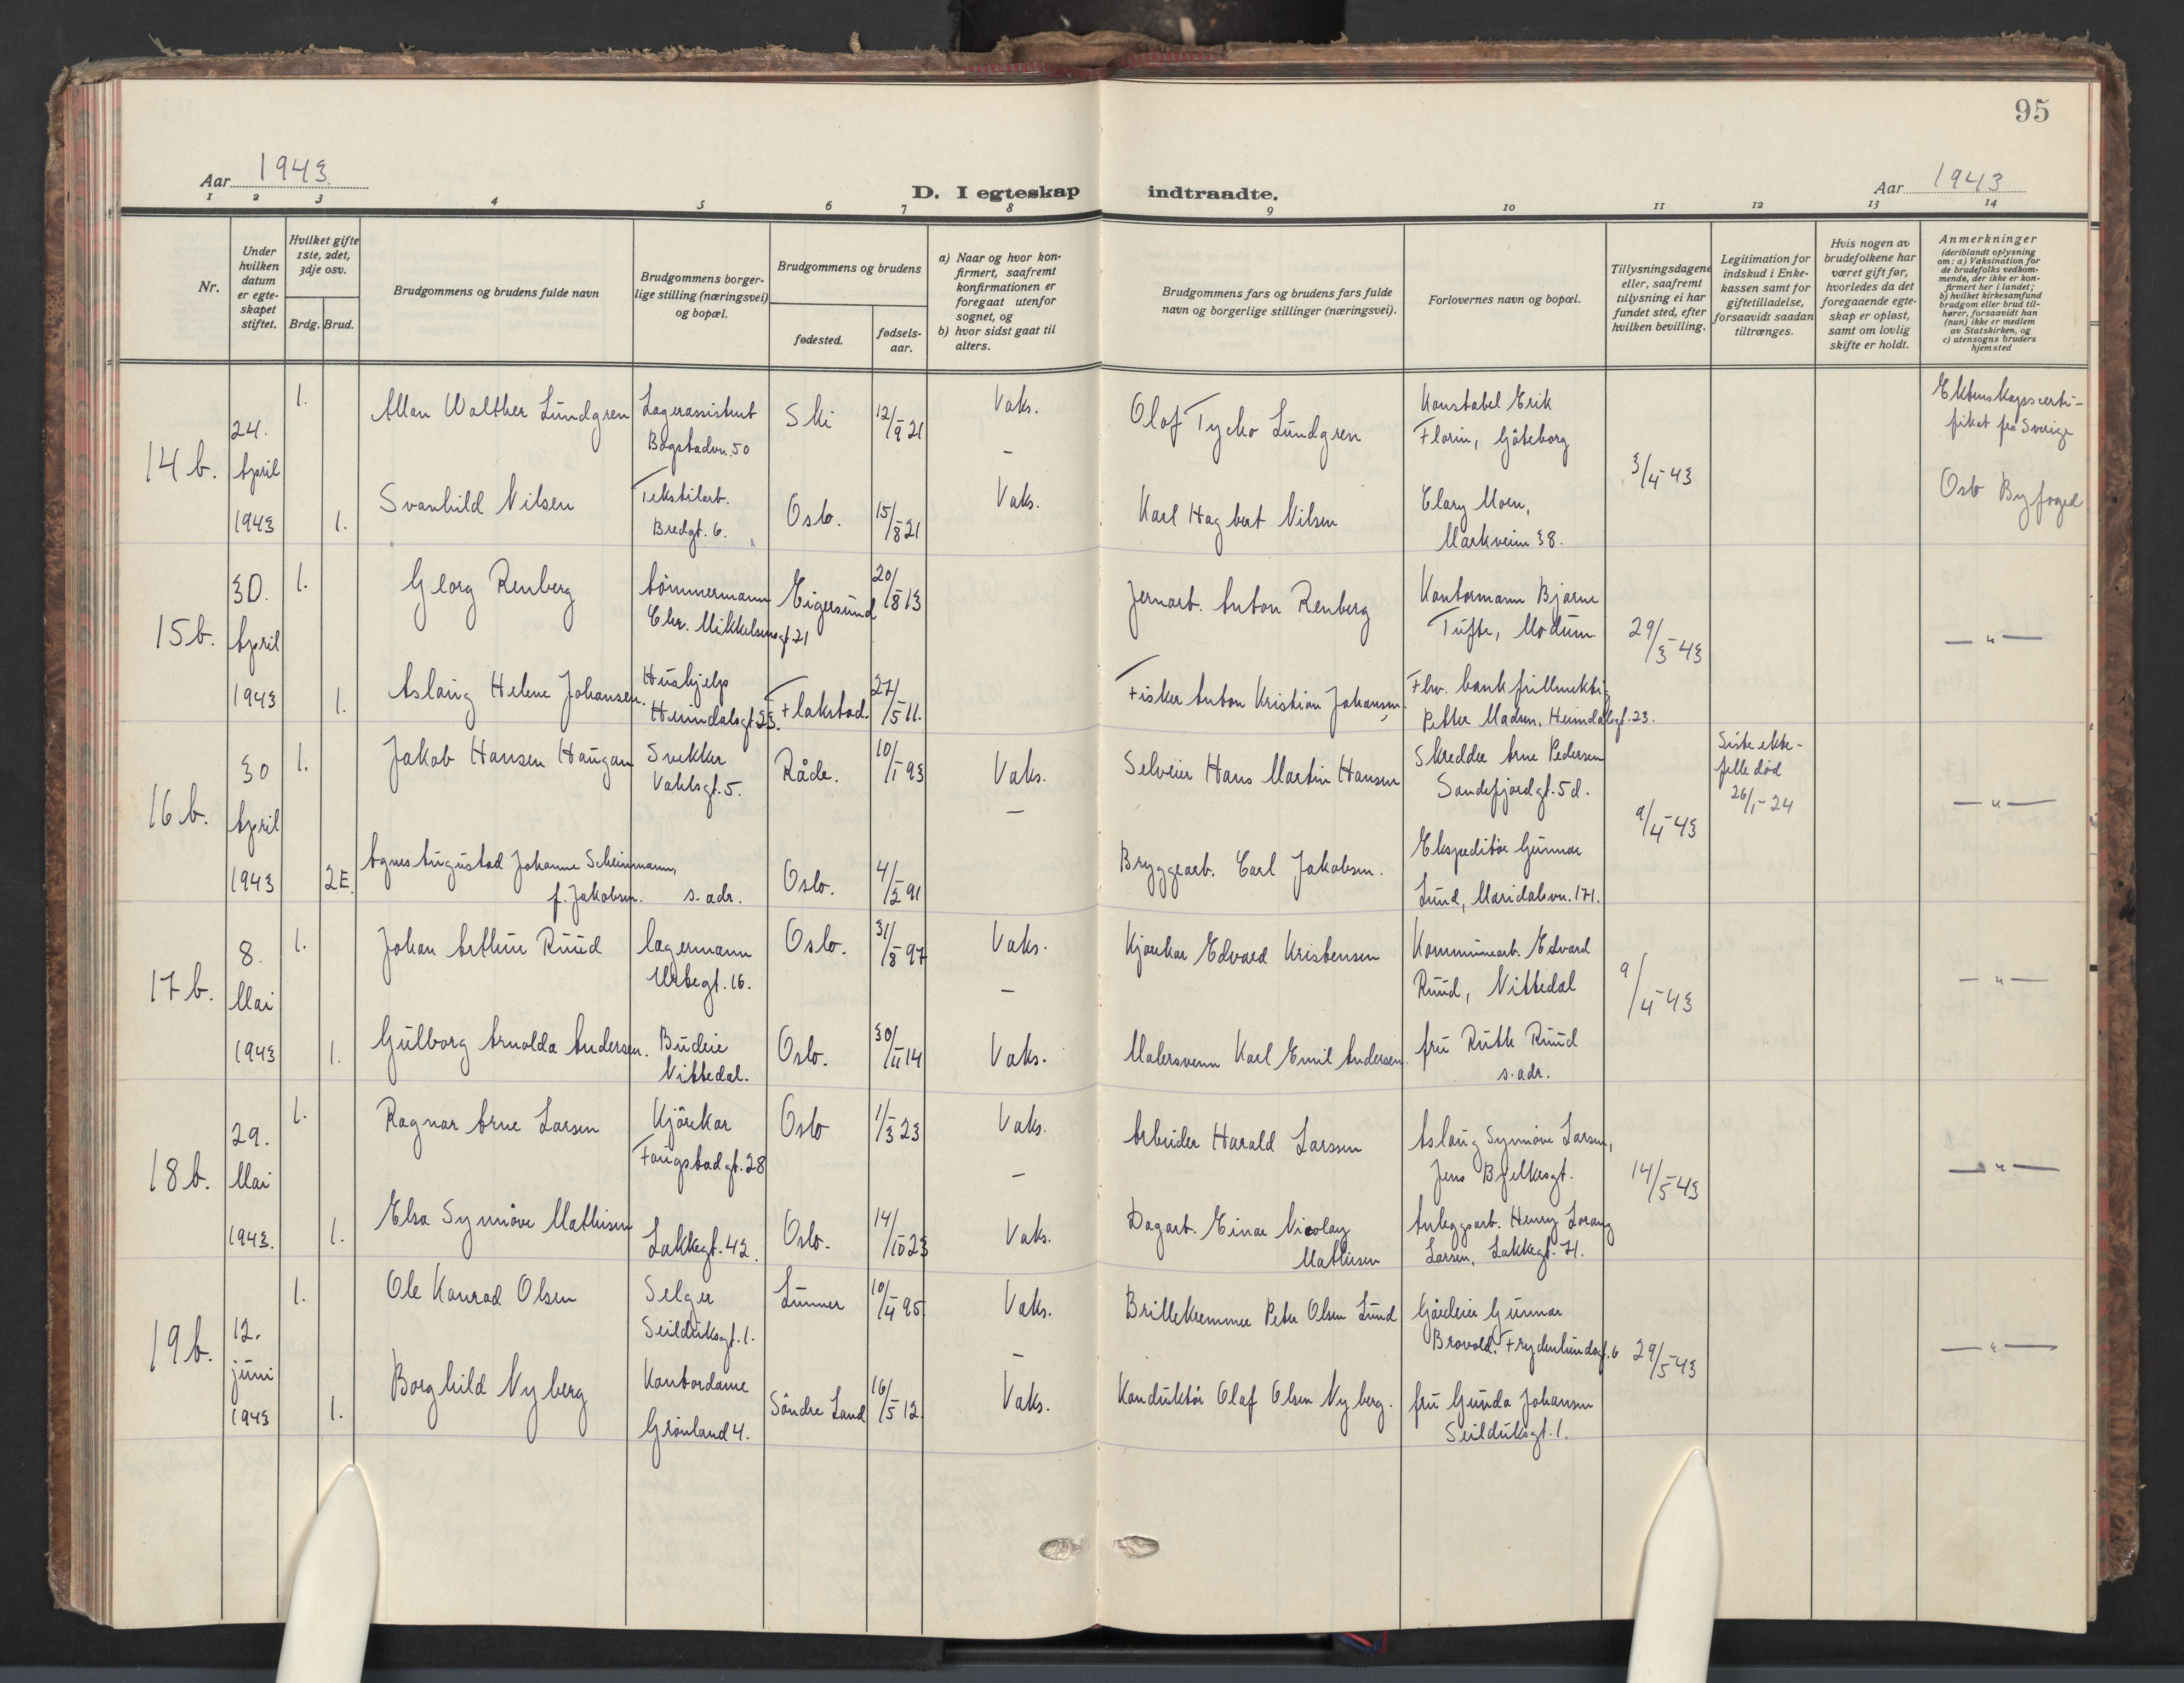 95
Aar 1943
D. I egteskap indtraadte.
Aar 1943
1 2 3 4 5 6 7 8 9 10 11 12 13 14
Nr.
Under hvilken datum er egteskapet stiftet.
Hvilket gifte 1ste, 2det, 3dje osv.
Brdg. Brud.
Brudgommens og brudens fulde navn
Brudgommens borgerlige stilling (næringsvei) og bopæl.
Brudgommens og brudens
fødested.
fødselsaar.
a) Naar og hvor konfirmert, saafremt konfirmationen er foregaat utenfor sognet, og
b) hvor sidst gaat til alters.
Brudgommens fars og brudens fars fulde navn og borgerlige stillinger (næringsvei).
Forlovernes navn og bopæl.
Tillysningsdagene eller, saafremt tillysning ei har fundet sted, efter hvilken bevilling.
Legitimation for indskud i Enkekassen samt for giftetilladelse, forsaavidt saadan tiltrænges.
Hvis nogen av brudefolkene har været gift før, hvorledes da det foregaaende egteskap er opløst, samt om lovlig skifte er holdt.
Anmerkninger
(deriblandt oplysning om: a) Vaksination for de brudefolks vedkommende, der ikke er konfirmert her i landet; b) hvilket kirkesamfund brudgom eller brud tilhører, forsaavidt han (hun) ikke er medlem av Statskirken, og c) utensogns bruders hjemsted
14 b.
24. April 1943
1.
Allan Walther Lundgren
Lagerassistent
Bogstadvn. 50
Ski
12/9 21
Vaks.
—
Olof Tycho Lundgren
Konstabel Erik
Florin, Göteborg
3/4-43
Ektenskapscerti-
fikat fra Sverige
1.
Svanhild Nilsen
Tekstilarb.
Bredgt. 6.
Oslo.
15/8 21
Vaks.
Karl Hagbert Nilsen
Clary Moen,
Markveien 38.
Oslo Byfoged
15 b.
30. April 1943
1.
Georg Renberg
tømmermann
Chr. Mikkelsensgt. 21
Eigersund
20/8 13
Jernarb. Anton Renberg
Kontormann Bjarne
Tufte, Modum.
29/3-43
— " —
1.
Aslaug Helene Johansen.
Hushjelp
Heimdalsgt. 23.
Flakstad.
27/5 11.
Fisker Anton Kristian Johansen,
Fhv. bankfullmektig
Petter Madsen, Heimdalsgt. 23.
16 b.
30 April 1943
1.
Jakob Hansen Haugan
Snekker
Vahlsgt. 5.
Råde.
10/1 93
Vaks.
—
Selveier Hans Martin Hansen
Skredder Arne Pedersen
Sandefjordgt. 5d.
9/4-43
Siste ekte-
felle død
26/1-24
— " —
2E.
Agnes Augustad Johanne Scheinmann,
f. Jakobsen.
s. adr.
Oslo.
4/3 91
Bryggearb. Carl Jakobsen.
Ekspeditør Gunnar
Lund, Maridalsvn. 171.
17 b.
8. Mai 1943
1.
Johan Arthur Ruud
lagermann
Urtegt. 16.
Oslo.
31/8 97
Vaks.
—
Kjørekar Edvard Kristensen
Kommunearb. Edvard
Ruud, Nittedal
9/4-43
— " —
1.
Gulborg Arnolda Andersen.
Budeie
Nittedal.
Oslo.
30/11 14
Vaks.
Malersvenn Karl Emil Andersen.
fru Ruth Ruud
s. adr.
18 b.
29. Mai 1943.
1.
Ragnar Arne Larsen
Kjørekar
Faugstadgt. 28
Oslo
1/3 23
Vaks.
—
Arbeider Harald Larssen
Aslaug Synnøve Larsen,
Jens Bjelkesgt.
14/5-43
— " —
1.
Elsa Synnøve Mathisen
Lakkegt. 42.
Oslo.
14/10 23
Vaks.
Dagarb. Einar Nicolay
Mathisen
Anleggsarb. Henry Lorang
Larsen, Lakkegt. 71.
19 b.
12. juni 1943
1.
Ole Konrad Olsen
Selger
Seilduksgt. 1.
Lunner
10/4 95
Vaks.
—
Brillekremmer Peter Olsen Lund
Gårdeier Gunnar
Brovold. Frydenlundsgt. 6
29/5-43
— " —
1.
Borghild Nyberg
Kontordame
Grønland 4.
Søndre Land
16/5 12.
Vaks.
Konduktør Olaf Olsen Nyberg.
fru Gunda Johansen
Seilduksgt. 1.